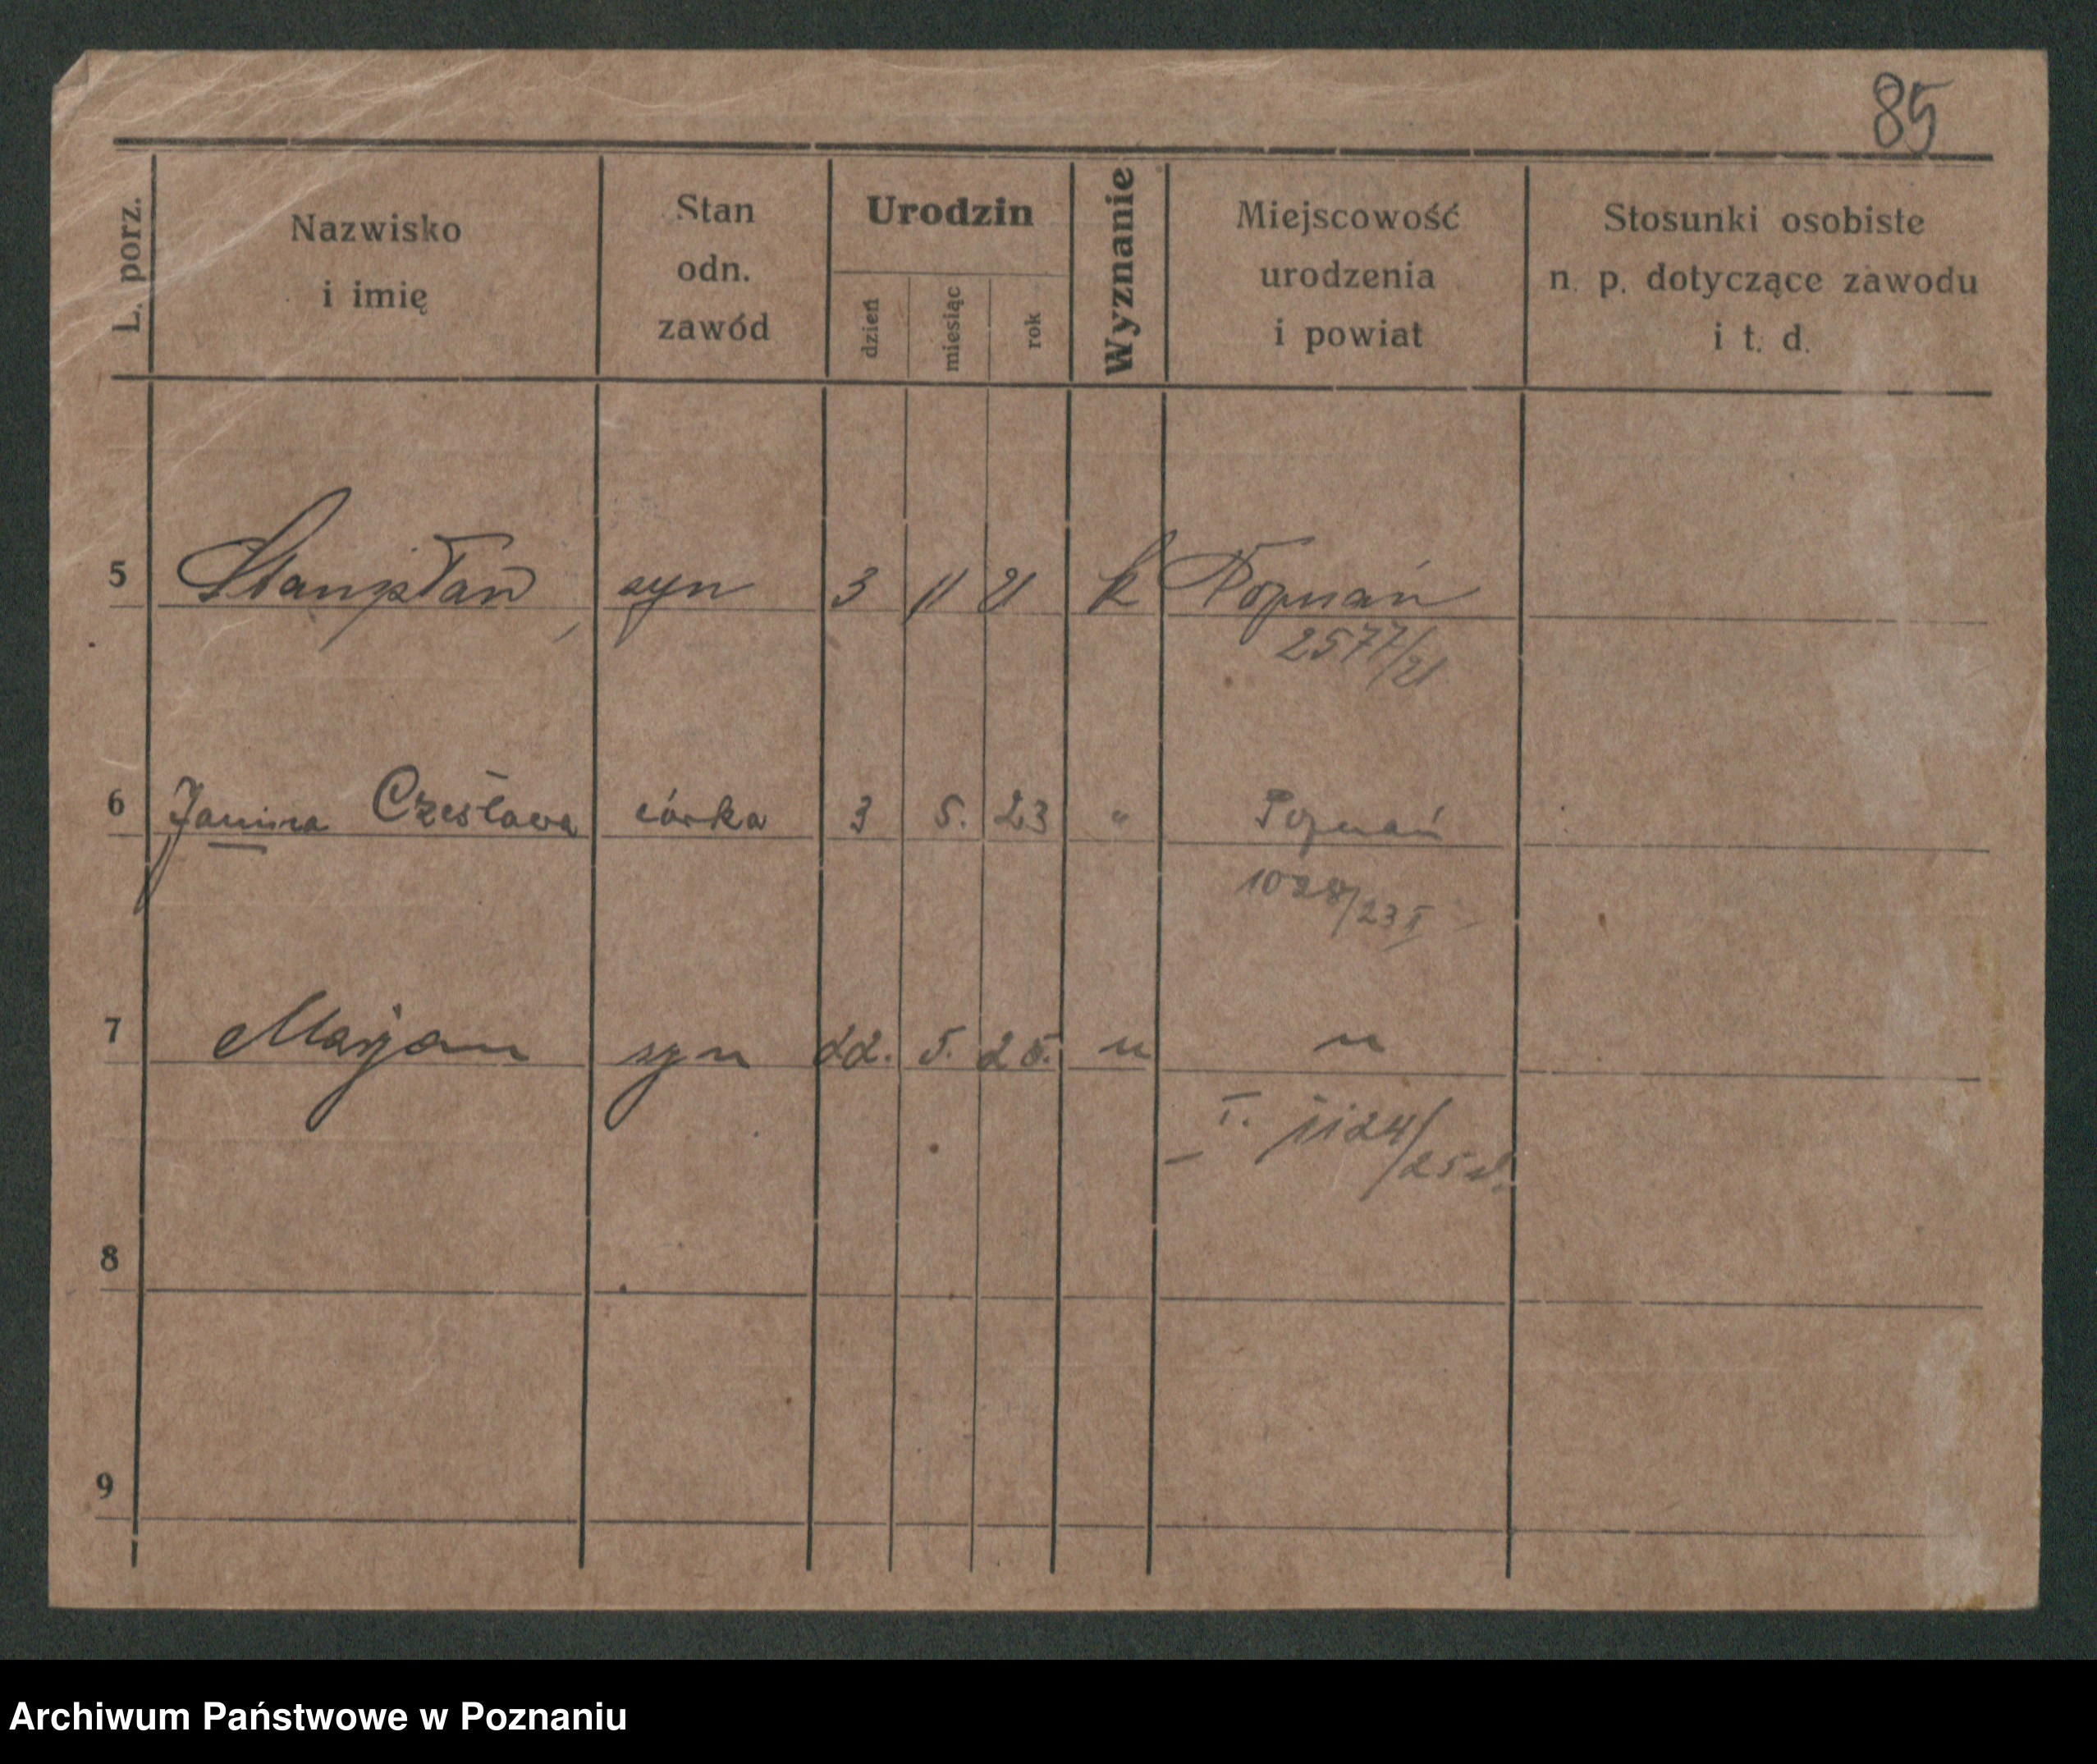 85
L. porz.
Nazwisko
i imię
Stan
odn.
zawód
Urodzin
dzień
miesiąc
rok
Wyznanie
Miejscowość
urodzenia
i powiat
Stosunki osobiste
n. p. dotyczące zawodu
i t. d.
5 syn 3 11 21 k Poznań
2577/21
6 Janina Czesława córka 3 5. 23 " Poznań
1028/23 I
7 Marjan syn 22. 5. 25. " "
I. 1124/25
8
9
Archiwum Państwowe w Poznaniu